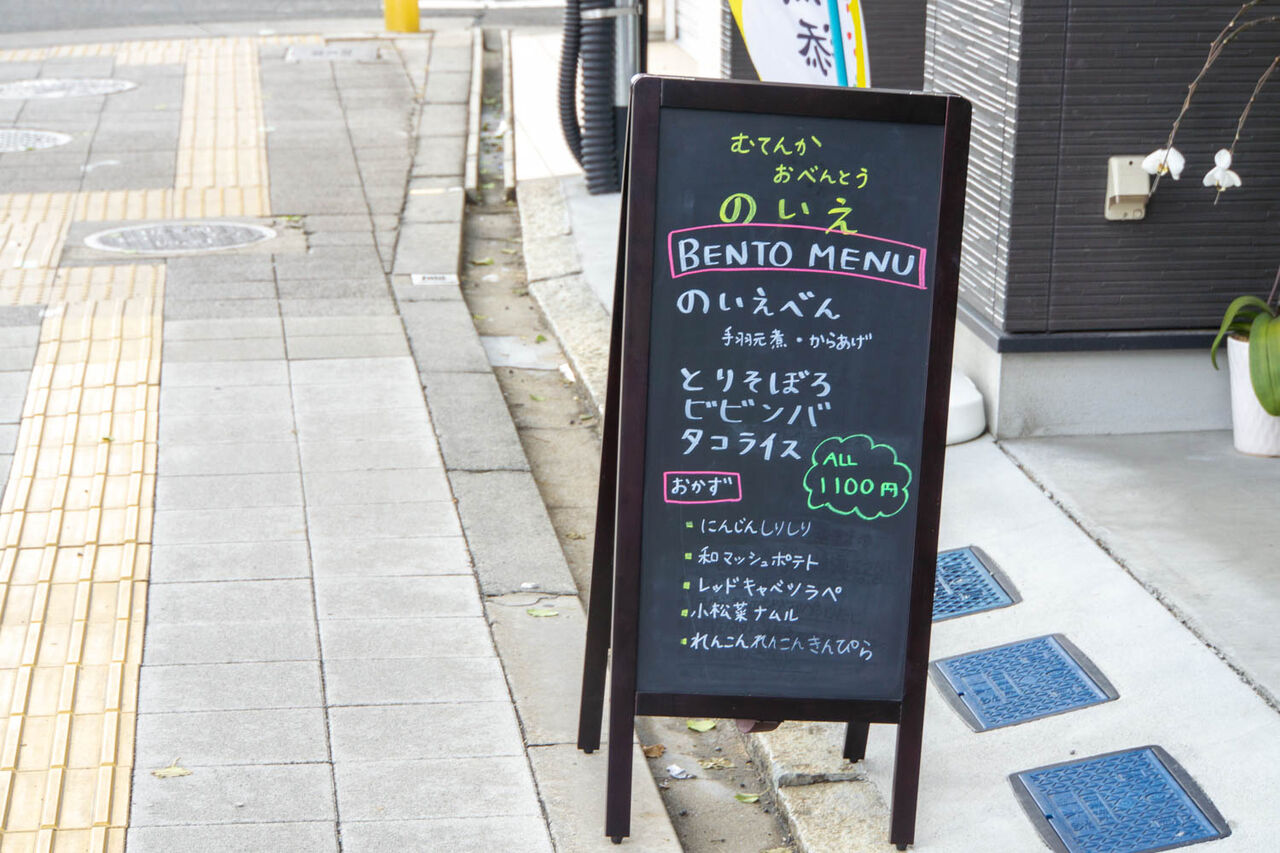 添
むてんか
おべんとう
のいえ
BENTO MENU
のいえべん
手羽元煮・からあげ
とりそぼろ
ビビンバ
タコライス
ALL
1100円
おかず
にんじんしりしり
和マッシュポテト
レッドキャベツラペ
小松菜ナムル
れんこんれんこんきんぴら